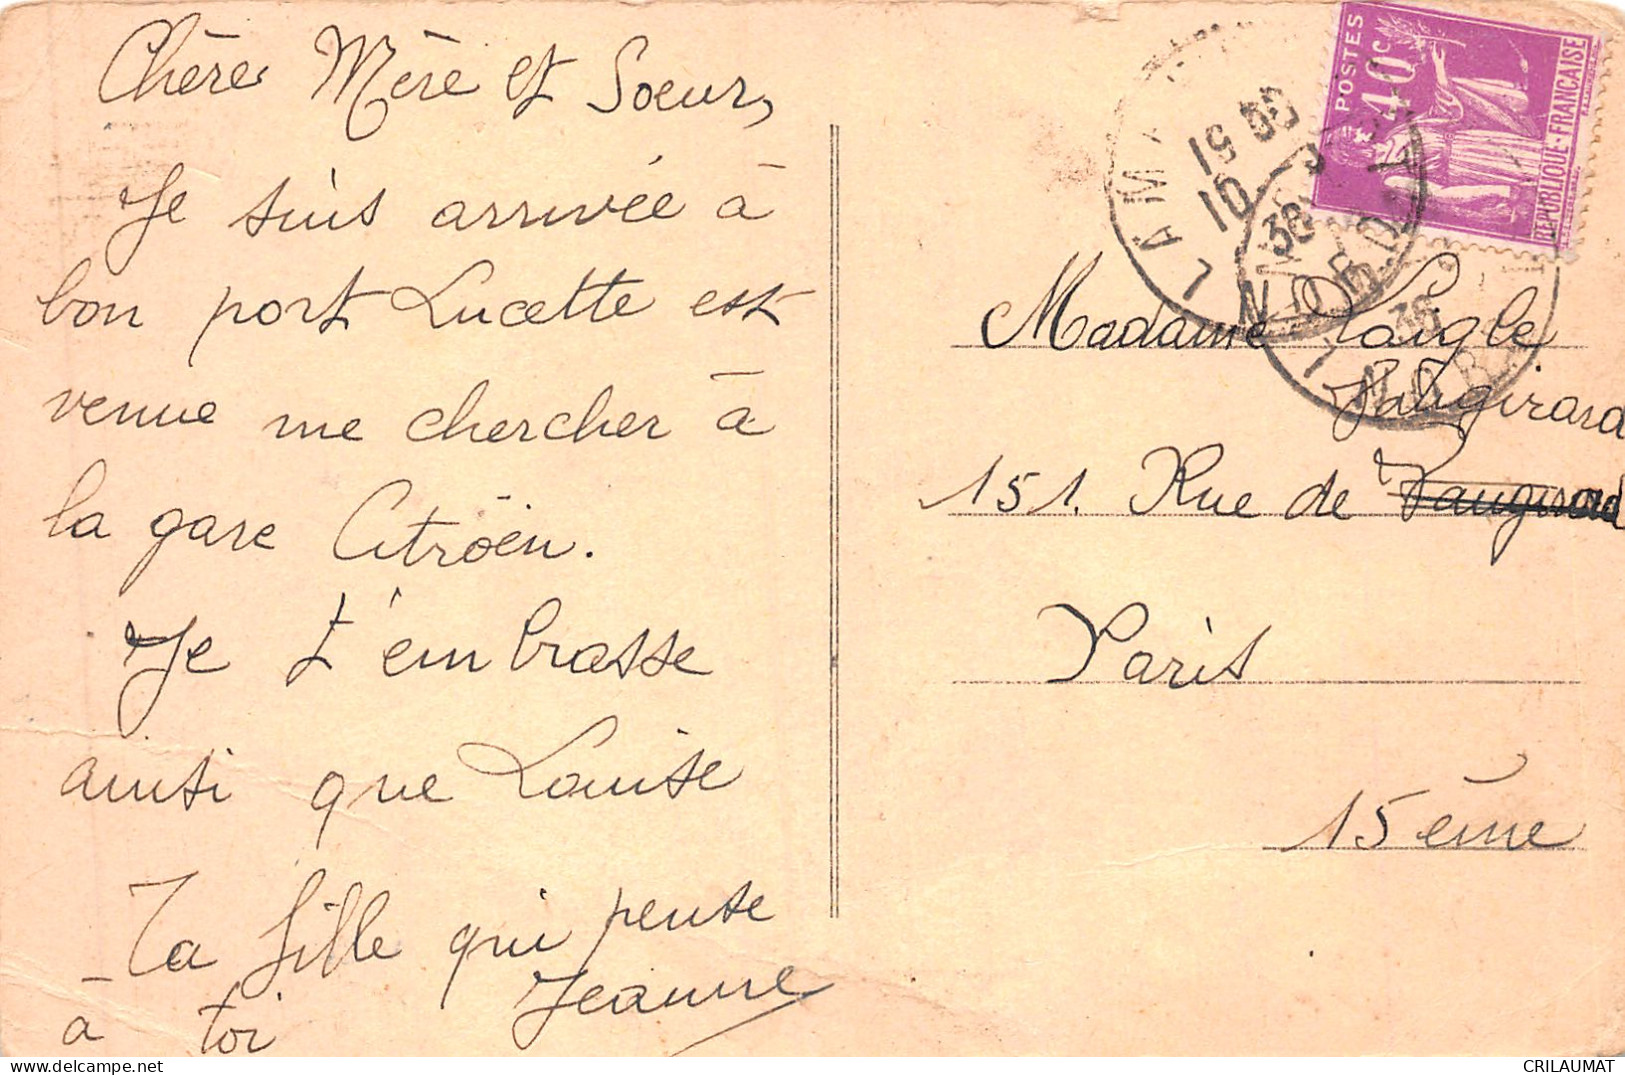 Chère Mère et Soeur,
Je suis arrivée à
bon port Lucette est
venue me chercher à
la gare Citroën.
Je t'embrasse
ainsi que Louise
Ta fille qui pense
à toi Jeanne
POSTES
40c
REPUBLIQUE-FRANÇAISE
19 00
10
36
NORD
36
NORD
Madame Laigle
Vaugirard
151. Rue de Vaugirard
Paris
15ème
CRILAUMAT